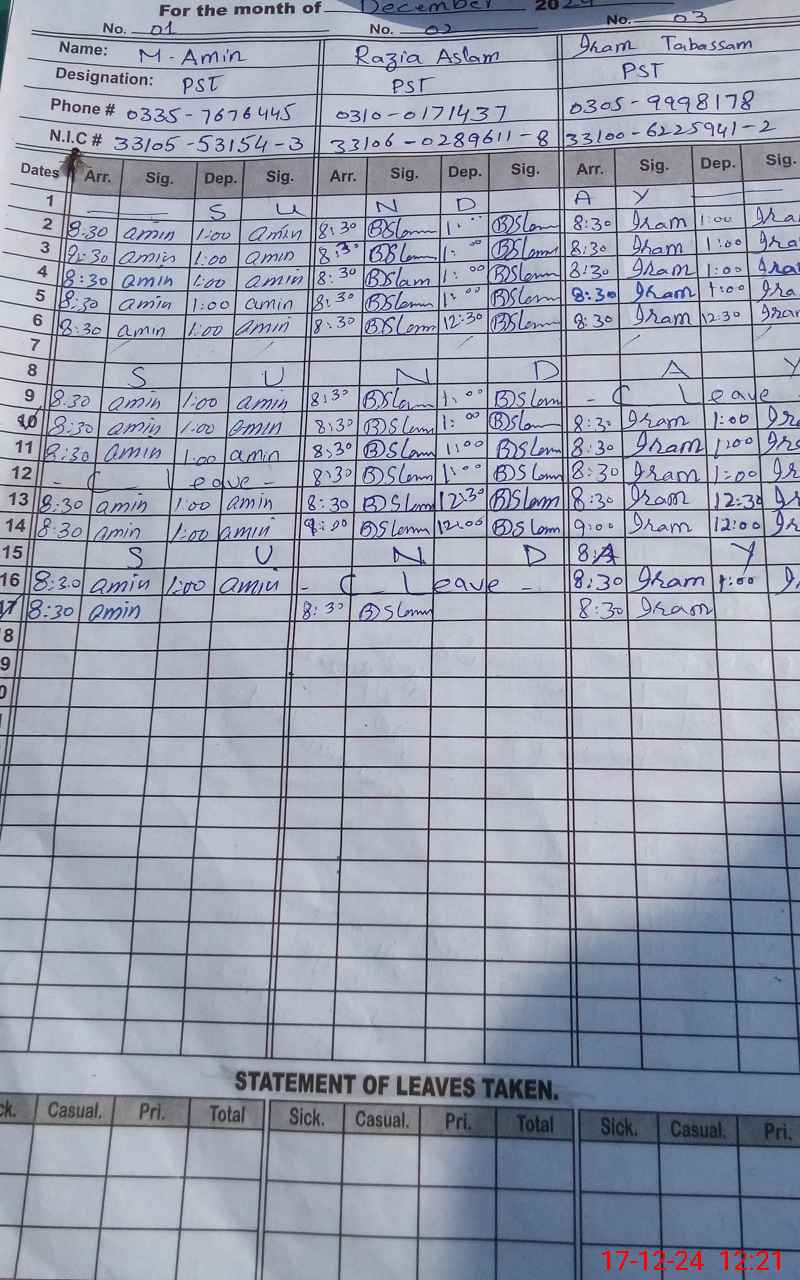 For the month of December 202
No. 01 No. 02 No. 03
Name: M-Amin Razia Aslam Iram Tabassam
Designation: PST PST PST
Phone # 0335-7676445 0310-0171437 0305-9998178
N.I.C # 33105-53154-3 33106-0289611-8 33100-6225941-2
Dates Arr. Sig. Dep. Sig. Arr. Sig. Dep. Sig. Arr. Sig. Dep. Sig.
1 S U N D A Y
2 8:30 amin 1:00 amin 8:30 1:00 8:30 Iram 1:00 Ira
3 8:30 amin 1:00 amin 8:30 1:00 8:30 Iram 1:00 Ira
4 8:30 amin 1:00 amin 8:30 1:00 8:30 Iram 1:00 Ira
5 8:30 amin 1:00 amin 8:30 1:00 8:30 Iram 1:00 Ira
6 8:30 amin 1:00 amin 8:30 12:30 8:30 Iram 12:30 Iram
7
8 S U N D A Y
9 8:30 amin 1:00 amin 8:30 1:00 - C Leave
10 8:30 amin 1:00 amin 8:30 1:00 8:30 Iram 1:00 Ira
11 8:30 amin 1:00 amin 8:30 1:00 8:30 Iram 1:00 Ira
12 - C Leave - 8:30 1:00 8:30 Iram 1:00 Ir
13 8:30 amin 1:00 amin 8:30 12:30 8:30 Iram 12:30 Ir
14 8:30 amin 1:00 amin 12:00 9:00 Iram 12:00 Ir
15 S U N D A Y
16 8:30 amin 1:00 amin - C Leave - 8:30 Iram 1:00 I
17 8:30 amin 8:30 8:30 Iram
8
9
0
STATEMENT OF LEAVES TAKEN.
ck. Casual. Pri. Total Sick. Casual. Pri. Total Sick. Casual. Pri.
17-12-24 12:21